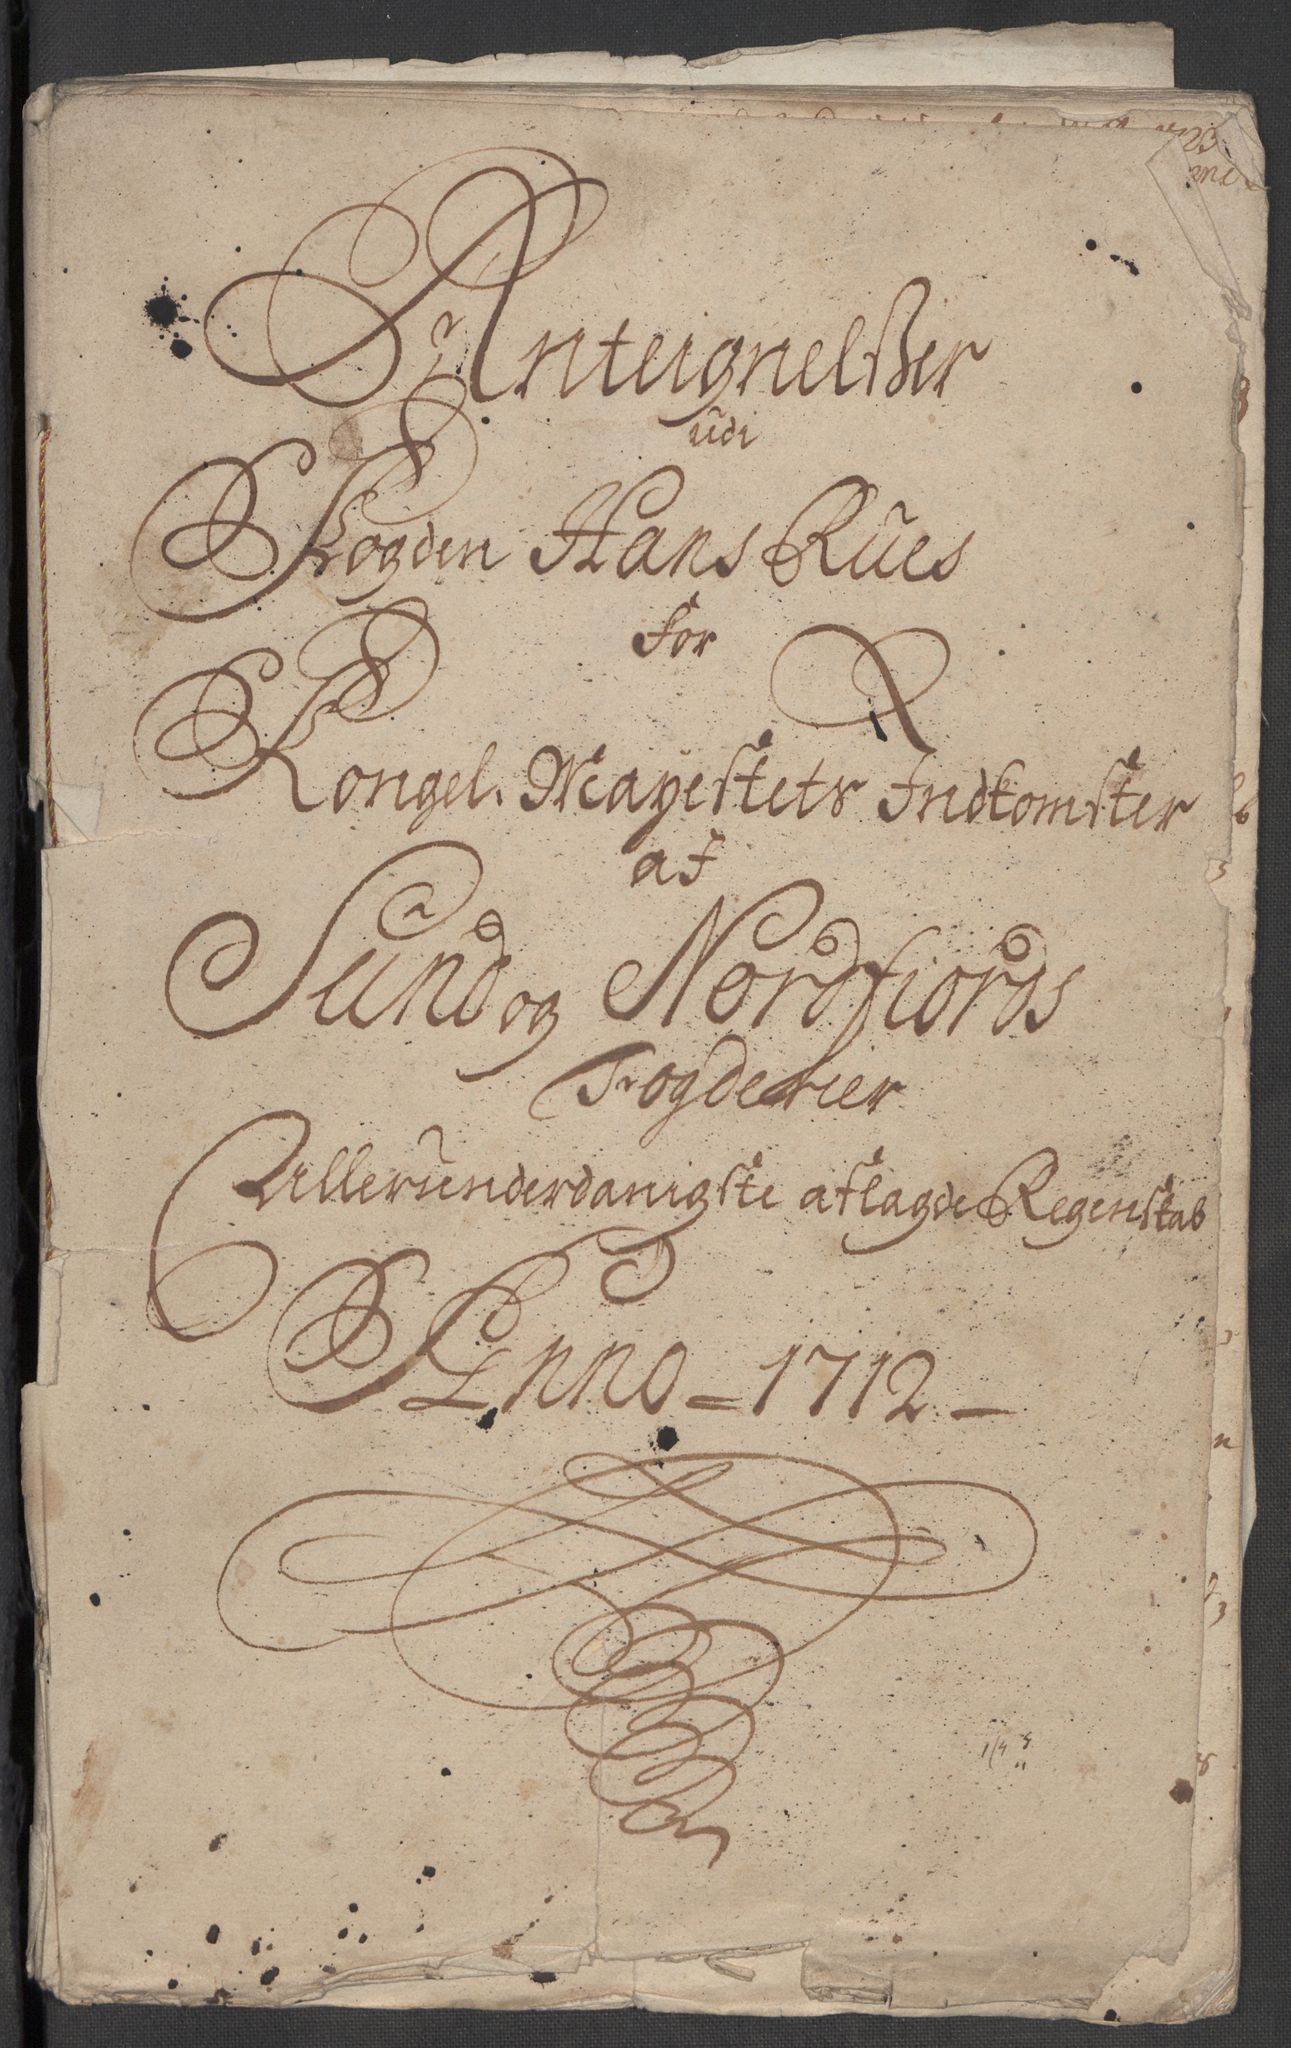 Anteignelßer
udi
Fogden Hans Rües
for
Kongel. Mayestets Indkomster
af
Sünd og Nordfiords
Fogderier
Alleründerdanigste aflagde Regenskab
Anno = 1712 =